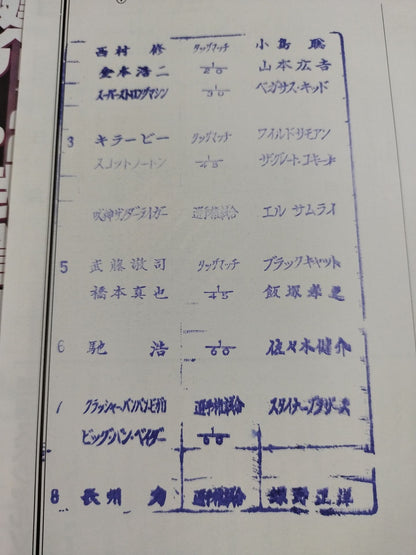 西村 修 タッグマッチ 小島 聡
金本浩二 1/20 山本広吉
スーパーストロングマシン 1/30 ペガサス・キッド
3 キラービー タッグマッチ ワイルドサモアン
スコットノートン 1/45 ザグレート・コキーナ
獣神サンダーライガー 選手権試合 エル サムライ
5 武藤敬司 タッグマッチ ブラックキャット
橋本真也 1/45 飯塚孝之
6 馳 浩 1/60 佐々木健介
7 クラッシャーバンバンビガロ 選手権試合 スタイナーブラザーズ
ビッグ・バン・ベイダー 1/60
8 長州 力 選手権試合 蝶野正洋